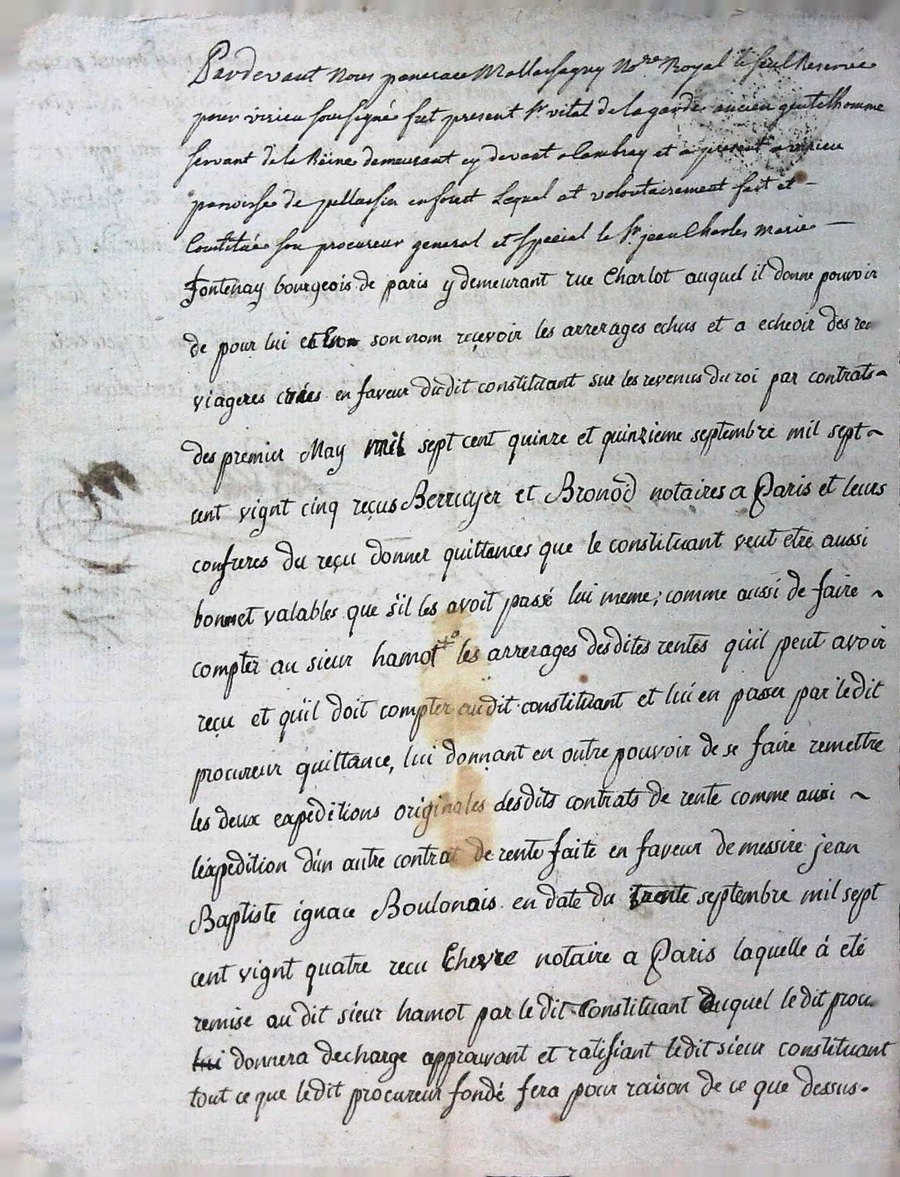 Pardevant Nous pancrace Mallassagny No.re Royal et seul Reservé
pour virieu soussigné fut present S.r vital de la garde ancien gentelhomme
servant de la Reine demeurant cy devant a Cambray et a present a virieu
paroisse de pellassin en forest Lequel at volontairement fait et
Constitué son procureur general et special le S.r jean Charles marie
fontenay bourgeois de paris y demeurant rue Charlot auquel il donne pouvoir
de pour lui et en son nom reçevoir les arrerages echus et a echeoir des ren
viageres crées en faveur dudit constituant sur les revenus du roi par contrats
des premier May mil sept cent quinze et quinzieme septembre mil sept
cent vignt cinq reçus Berruyer et Bronod notaires a Paris et leurs
confreres du reçu donner quittances que le constituant veut etre aussi
bonnet valables que s'il les avoit passé lui meme; comme aussi de faire
compter au sieur hamot les arrerages desdites rentes qu'il peut avoir
reçu et qu'il doit compter audit constituant et lui en passer par ledit
procureur quittance, lui donnant en outre pouvoir de se faire remettre
les deux expeditions originales desdits contrats de rente comme aussi
l'expedition d'un autre contrat de rente faite en faveur de messire jean
Baptiste ignace Boulonois en date du trente septembre mil sept
cent vignt quatre recu Chevre notaire a Paris laquelle á eté
remise au dit sieur hamot par le dit Constituant Duquel le dit procu
lui donnera decharge approuvant et ratifiant ledit sieur constituant
tout ce que ledit procureur fondé fera pour raison de ce que dessus.